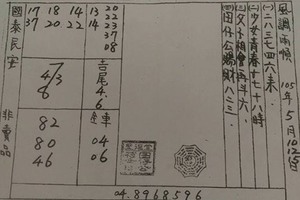 風調雨順
105年5月10 12 15日
(一)二八三七四六来.
(二)少女青春十七十八時
(三)父子相會再年六
(四)田仔公賜財八二三.
20
22
23
37
08
13
14
14
22
18
22
18
20
17
37
國泰民安
吉尾
4.
6
4
7/3
8
連車
04
06
82
80
46
非賣品
04.8968596